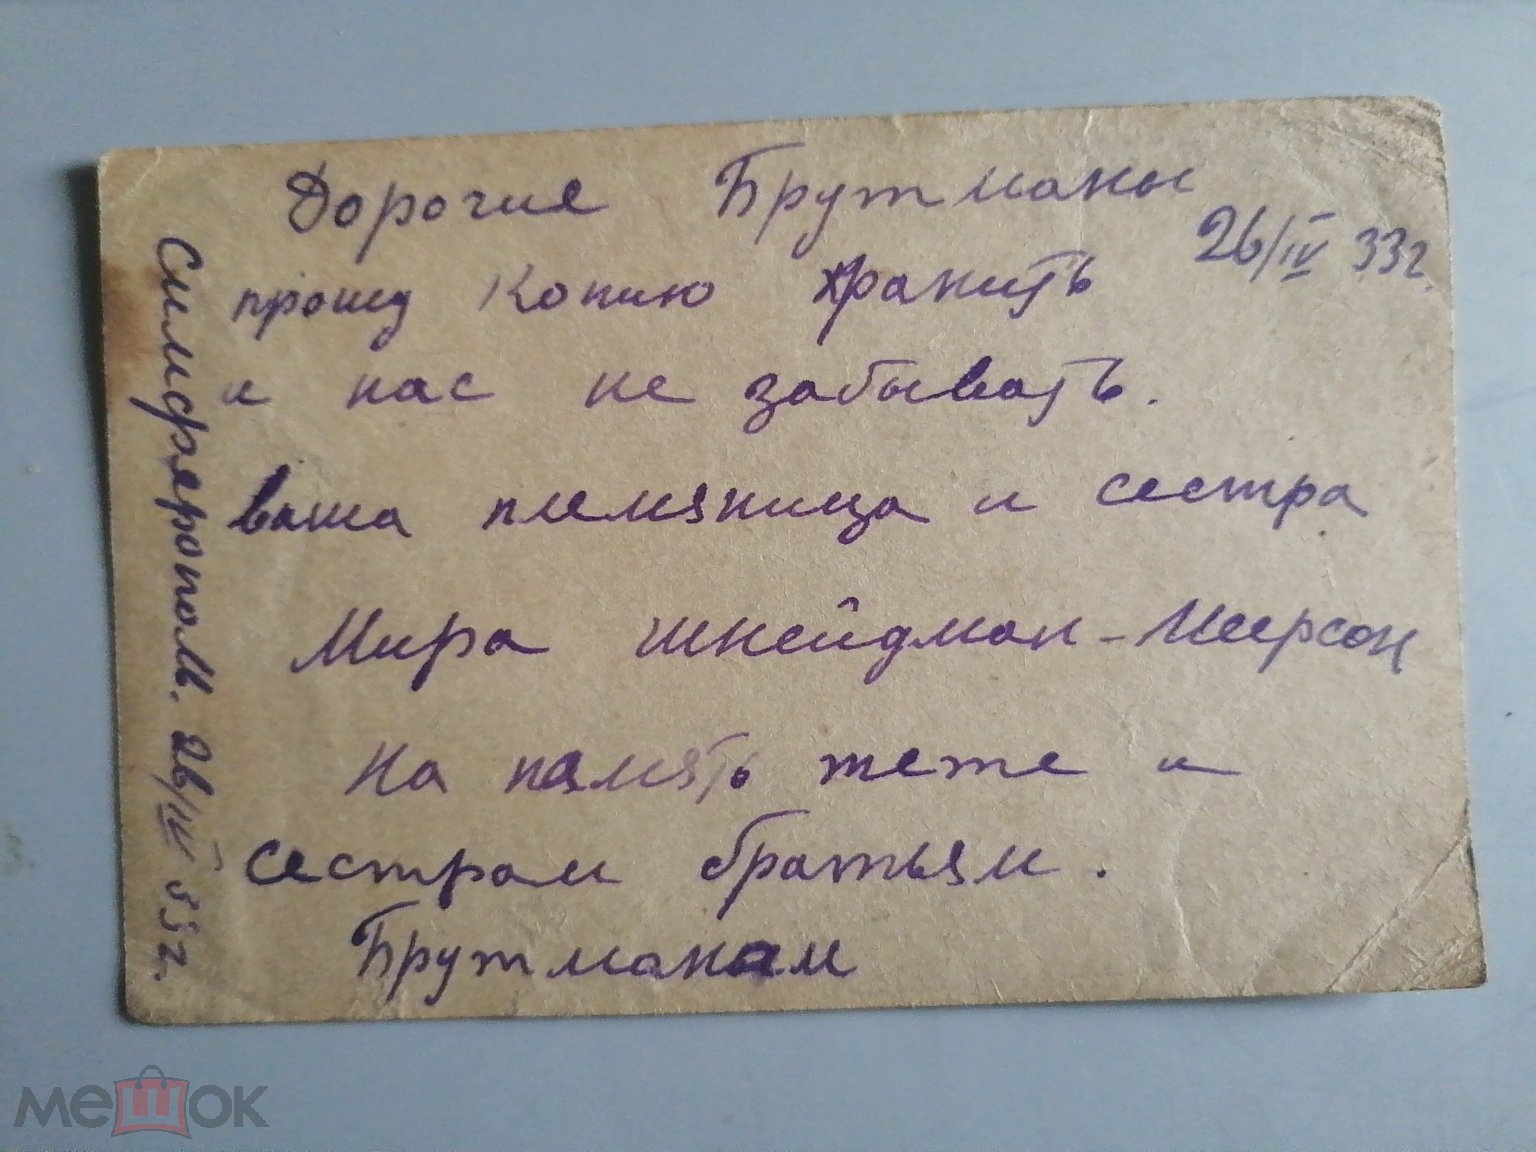 Дорогие Брутманы
26/IV 33г.
прошу копию хранить
и нас не забывать.
ваша племяница и сестра
Мира Шнейдман-Меерсон
На память тете и
сестрам братьям.
Брутманам
Симферополь. 26/IV 33г.
мешок